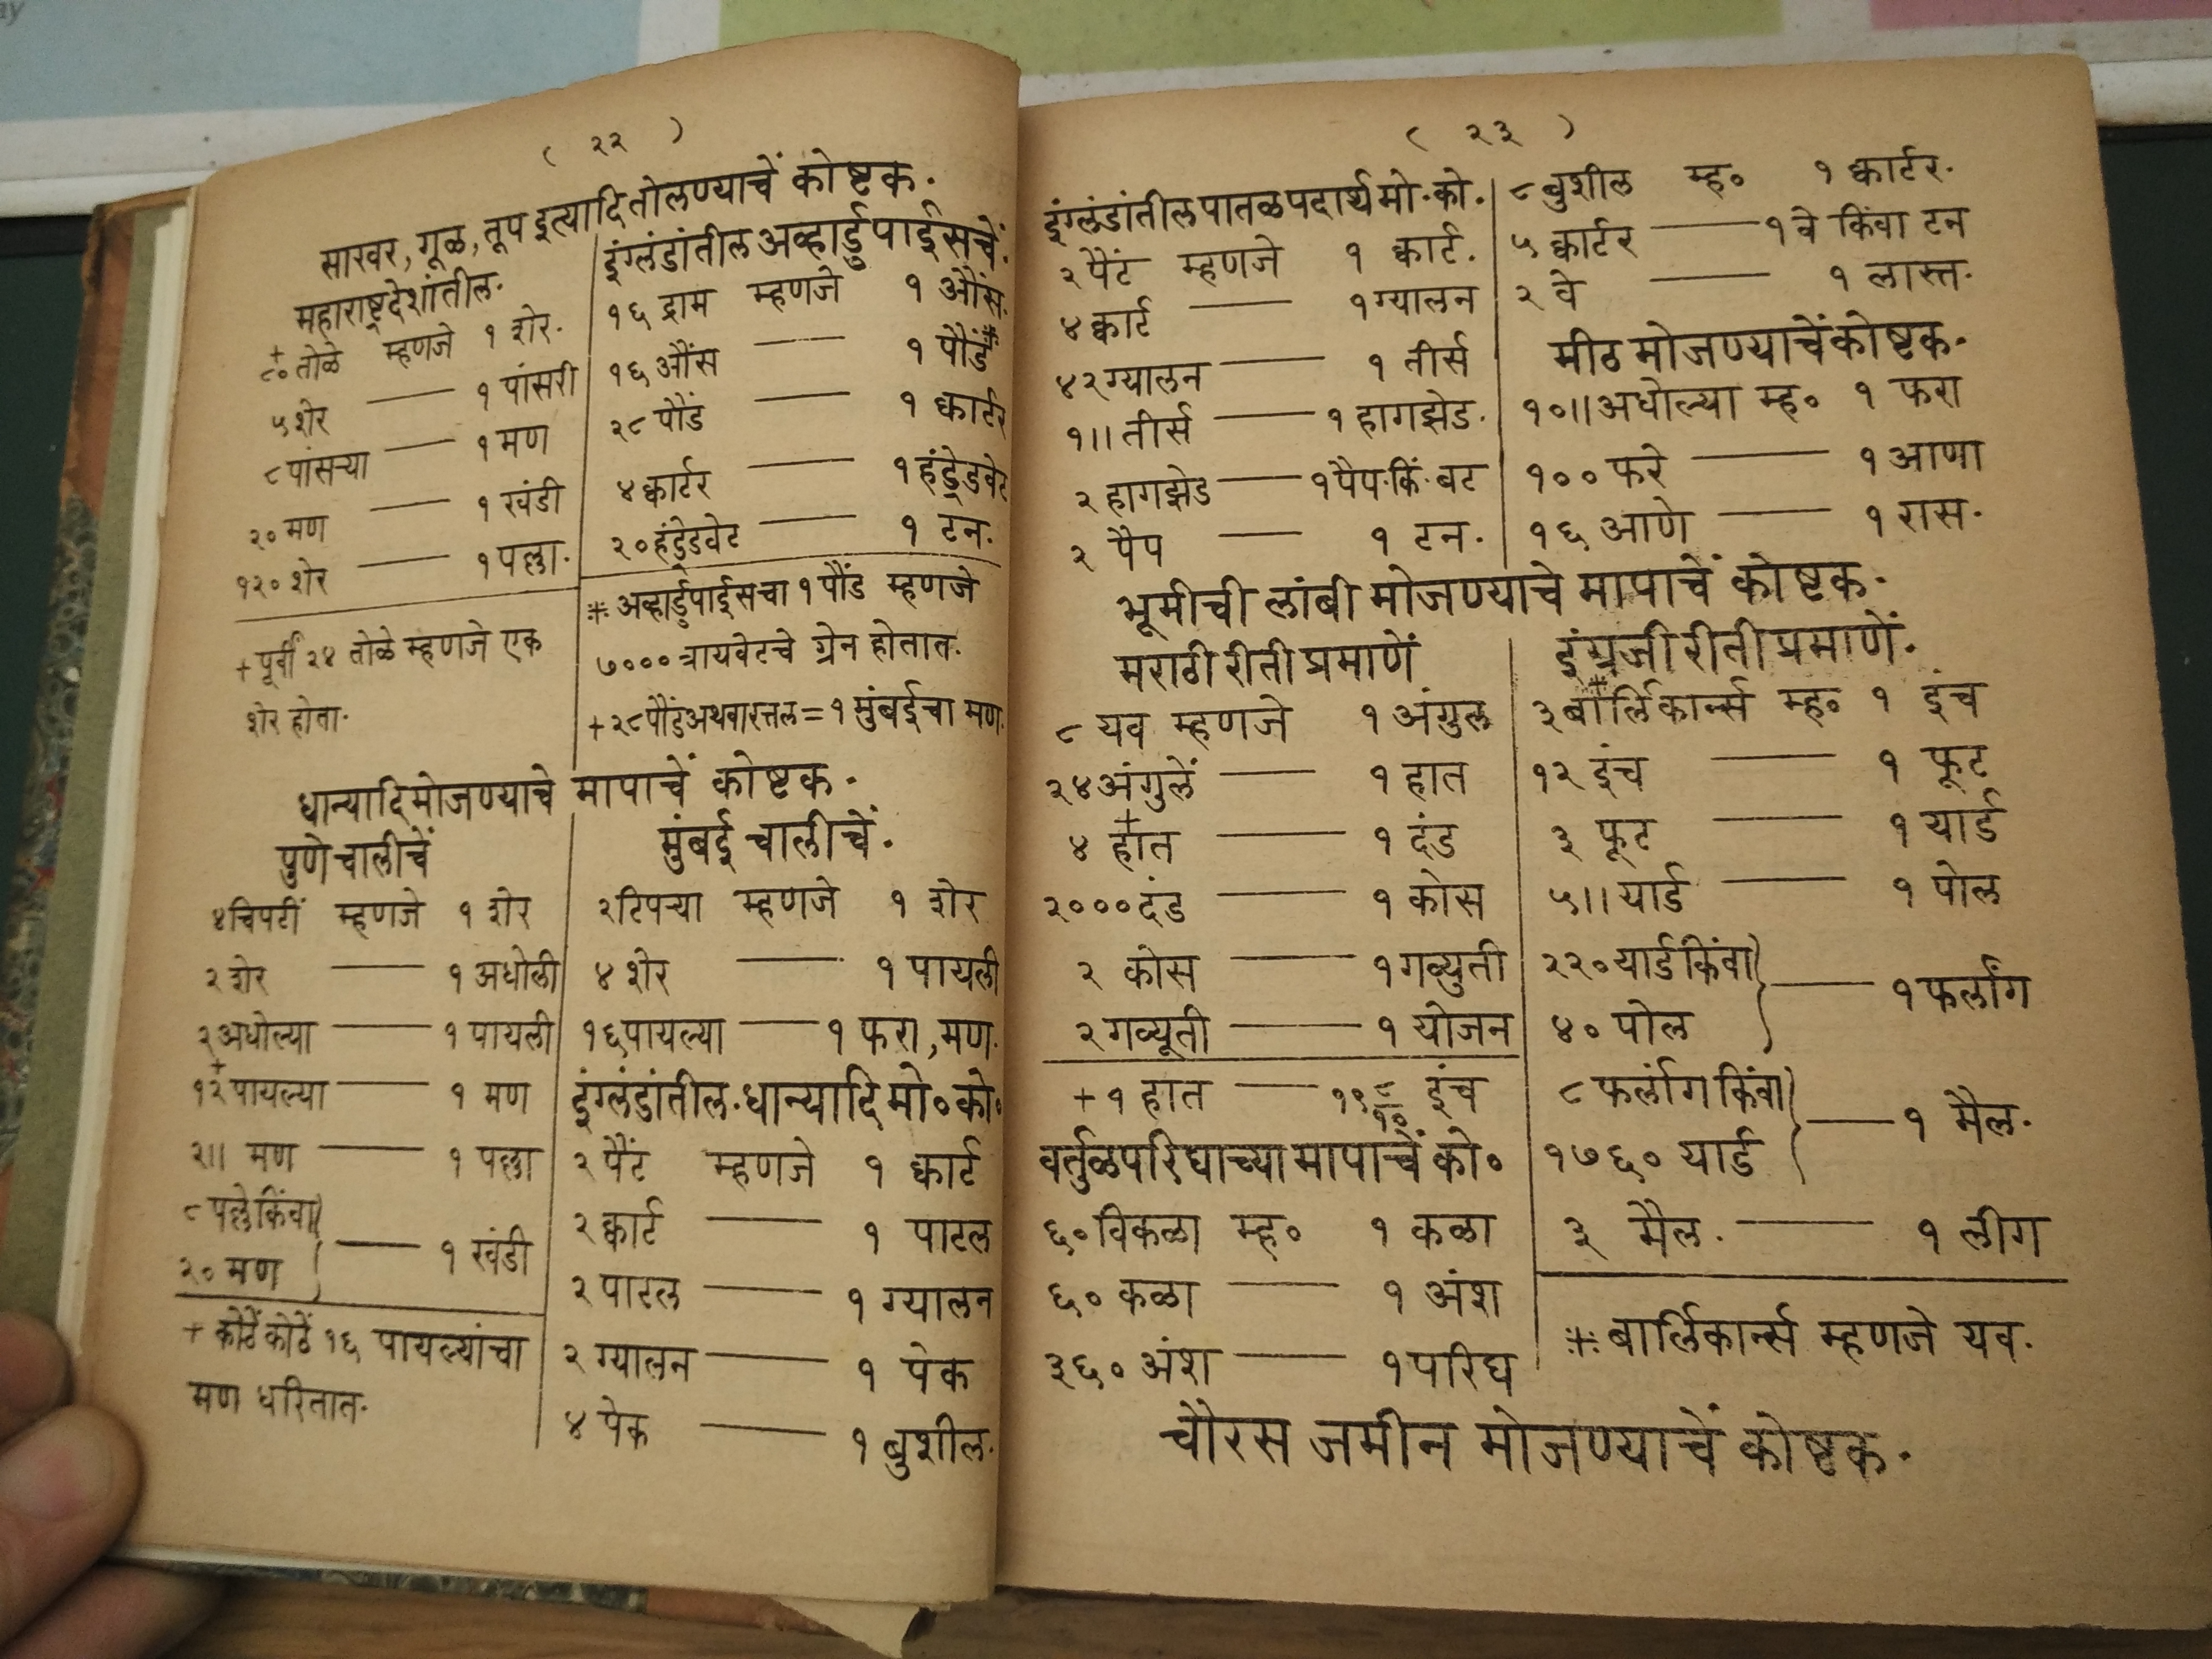 ( २२ )
साखर, गूळ, तूप इत्यादि तोलण्याचें कोष्टक.
महाराष्ट्रदेशांतील.
+
८० तोळे म्हणजे १ शेर.
५ शेर — १ पांसरी
८ पांसऱ्या — १ मण
२० मण — १ खंडी
१२० शेर — १ पल्ला.
+ पूर्वीं २४ तोळे म्हणजे एक
शेर होता.
इंग्लंडांतील अव्हार्डुपाईसचें.
१६ द्राम म्हणजे १ औंस.
१६ औंस — १ पौंड*
२८ पौंड — १ क्वार्टर
४ क्वार्टर — १ हंड्रेडवेट
२० हंड्रेडवेट — १ टन.
* अव्हार्डुपाईसचा १ पौंड म्हणजे
७००० त्रायवेटचे ग्रेन होतात.
+ २८ पौंड अथवा रत्तल = १ मुंबईचा मण.
धान्यादि मोजण्याचे मापाचें कोष्टक.
पुणे चालीचें
४ चिपटीं म्हणजे १ शेर
२ शेर — १ अधोली
२ अधोल्या — १ पायली
+
१२ पायल्या — १ मण
२॥ मण — १ पल्ला
८ पल्ले किंवा
२० मण ) — १ खंडी
+ कोठें कोठें १६ पायल्यांचा
मण धरितात.
मुंबई चालीचें.
२ टिपऱ्या म्हणजे १ शेर
४ शेर — १ पायली
१६ पायल्या — १ फरा, मण.
इंग्लंडांतील. धान्यादि मो० को०
२ पैंट म्हणजे १ क्वार्ट
२ क्वार्ट — १ पाटल
२ पाटल — १ ग्यालन
२ ग्यालन — १ पेक
४ पेक — १ बुशील.
( २३ )
इंग्लंडांतील पातळ पदार्थ मो. को.
२ पैंट म्हणजे १ क्वार्ट.
४ क्वार्ट — १ ग्यालन
४२ ग्यालन — १ तीर्स
१॥ तीर्स — १ हागझेड.
२ हागझेड — १ पैप. किं. बट
२ पैप — १ टन.
८ बुशील म्ह० १ क्वार्टर.
५ क्वार्टर — १ वे किंवा टन
२ वे — १ लास्त.
मीठ मोजण्याचें कोष्टक.
१०॥ अधोल्या म्ह० १ फरा
१०० फरे — १ आणा
१६ आणे — १ रास.
भूमीची लांबी मोजण्याचे मापाचें कोष्टक.
मराठी रीती प्रमाणें
८ यव म्हणजे १ अंगुल
२४ अंगुलें — १ हात
+
४ हात — १ दंड
२००० दंड — १ कोस
२ कोस — १ गव्युती
२ गव्यूती — १ योजन
+ १ हात — १९ ८/१० इंच
वर्तुळपरिघाच्या मापाचें को०
६० विकळा म्ह० १ कळा
६० कळा — १ अंश
३६० अंश — १ परिघ
इंग्रजी रीती प्रमाणें.
*
३ बार्लिकार्न्स म्ह० १ इंच
१२ इंच — १ फूट
३ फूट — १ यार्ड
५॥ यार्ड — १ पोल
२२० यार्ड किंवा
४० पोल ) — १ फर्लांग
८ फर्लांग किंवा
१७६० यार्ड ) — १ मैल.
३ मैल. — १ लीग
* बार्लिकार्न्स म्हणजे यव.
चौरस जमीन मोजण्याचें कोष्टक.